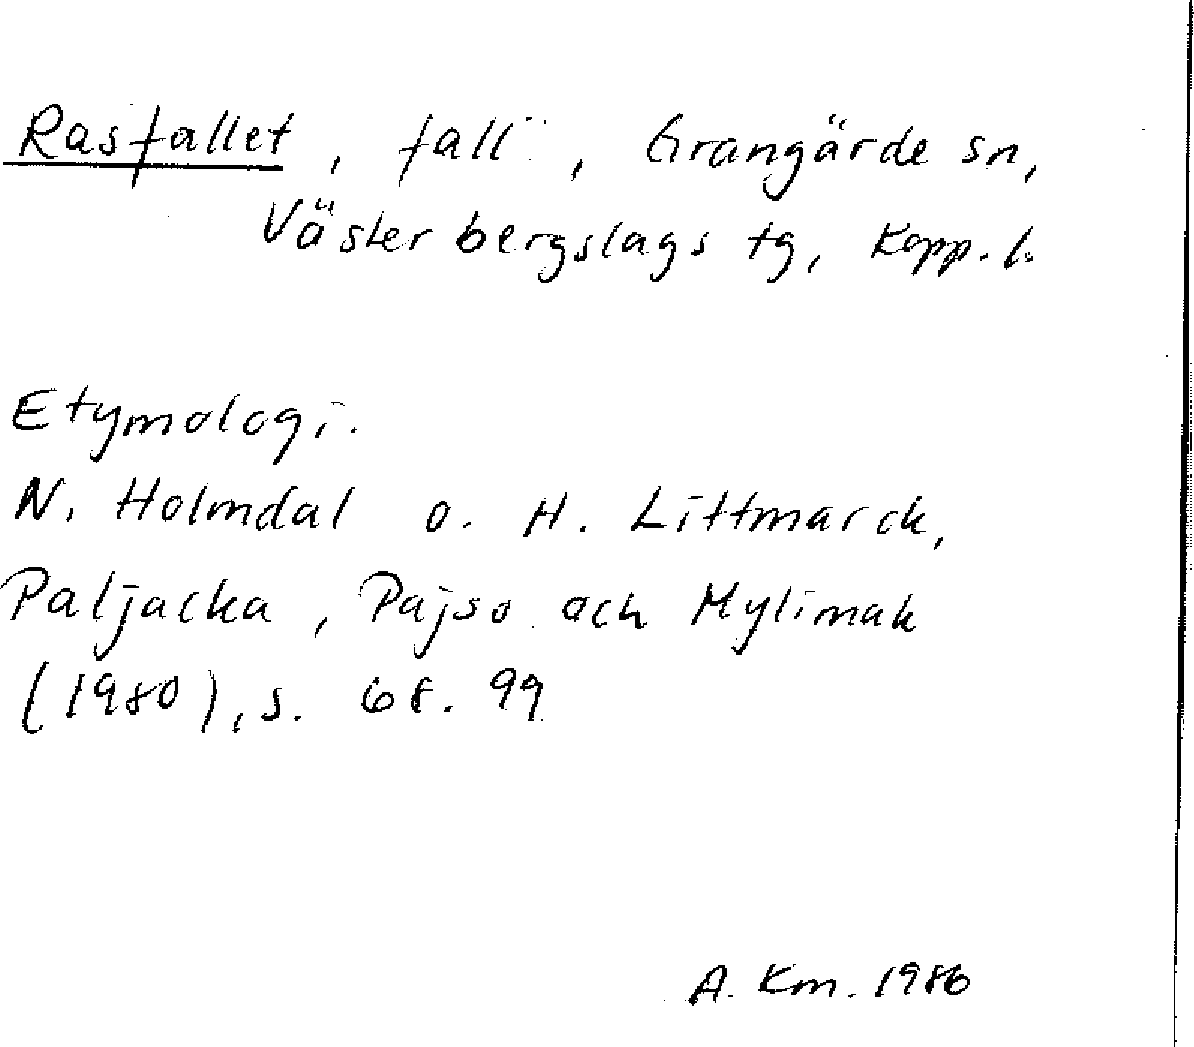 Rasfallet, fall, Grangärde sn,
Västerbergslags tg, Kopp. l.
Etymologi.
N. Holmdal o. H. Littmarck,
Paljacka, Pajso och Mylimak
(1980), s. 68. 99
A. Km. 1986